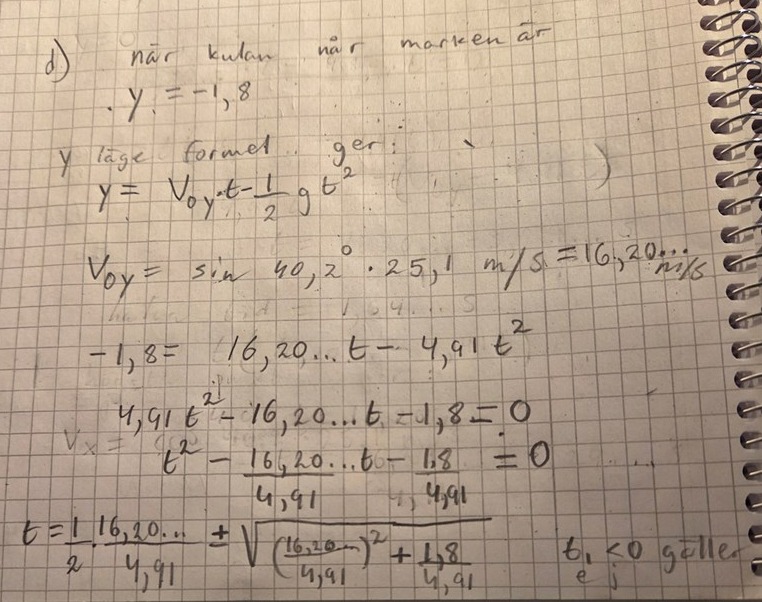 d) när kulan når marken är
y = -1,8
y läge formel ger:
y = V₀y·t - 1/2 g t²
V₀y = sin 40,2° · 25,1 m/s = 16,20... m/s
-1,8 = 16,20...t - 4,91 t²
4,91 t² - 16,20...t - 1,8 = 0
t² - 16,20.../4,91 t - 1,8/4,91 = 0
t = 1/2 · 16,20.../4,91 ± √((16,20.../4,91)² + 1,8/4,91) t₁ < 0 gäller ej